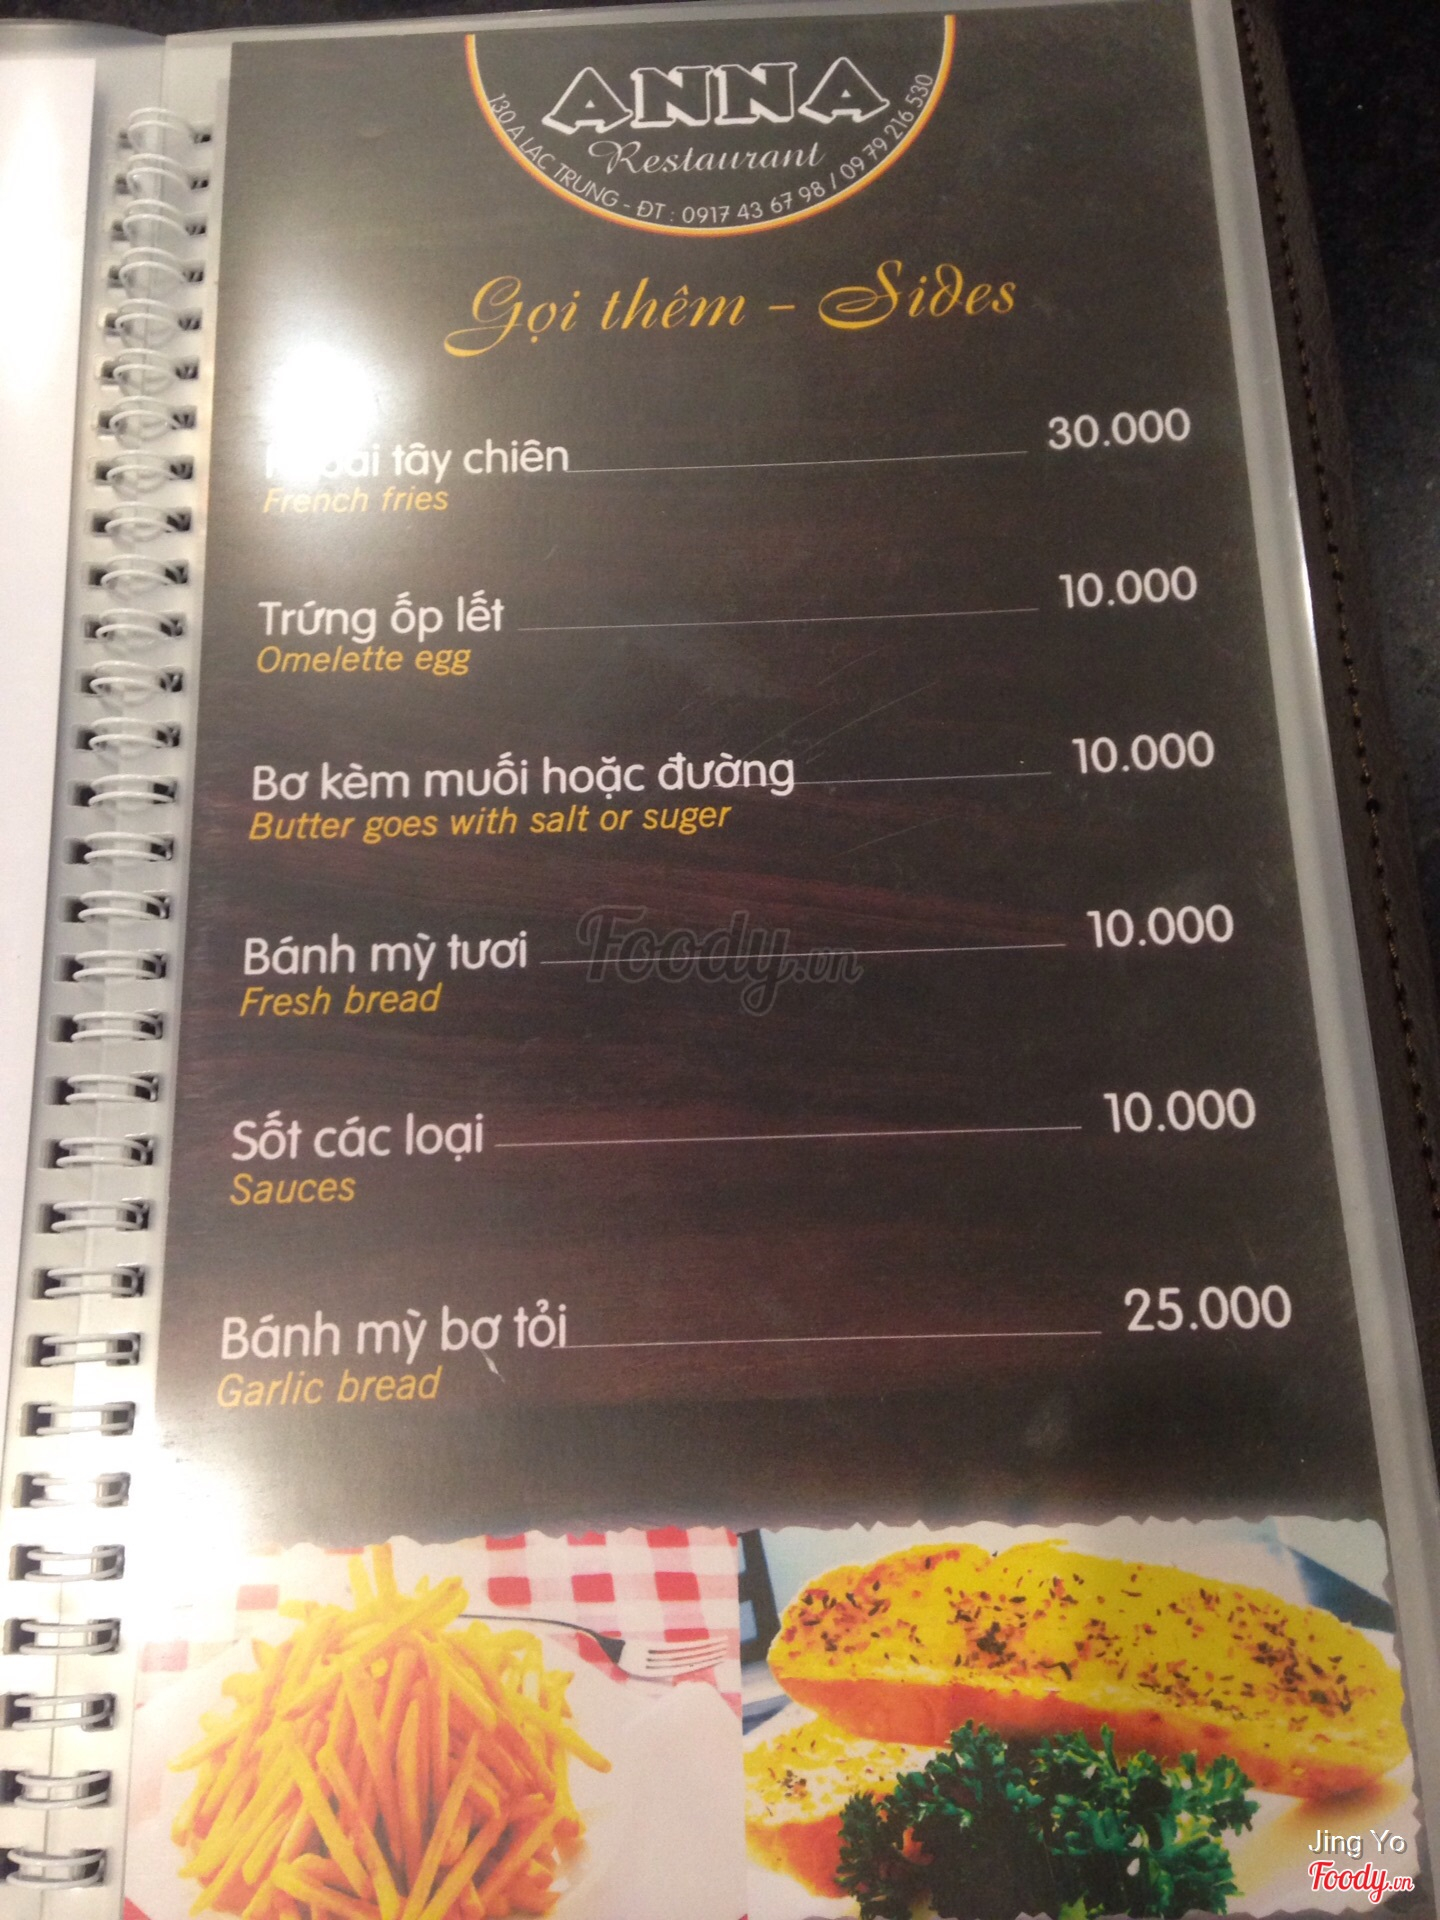 ANNA
Restaurant
130 A LẠC TRUNG - ĐT : 0917 43 67 98 / 09 79 216 530
Gọi thêm - Sides
tây chiên 30.000
French fries
Trứng ốp lết 10.000
Omelette egg
Bơ kèm muối hoặc đường 10.000
Butter goes with salt or suger
Bánh mỳ tươi 10.000
Fresh bread
Foody.vn
Sốt các loại 10.000
Sauces
Bánh mỳ bơ tỏi 25.000
Garlic bread
Jing Yo
Foody.vn